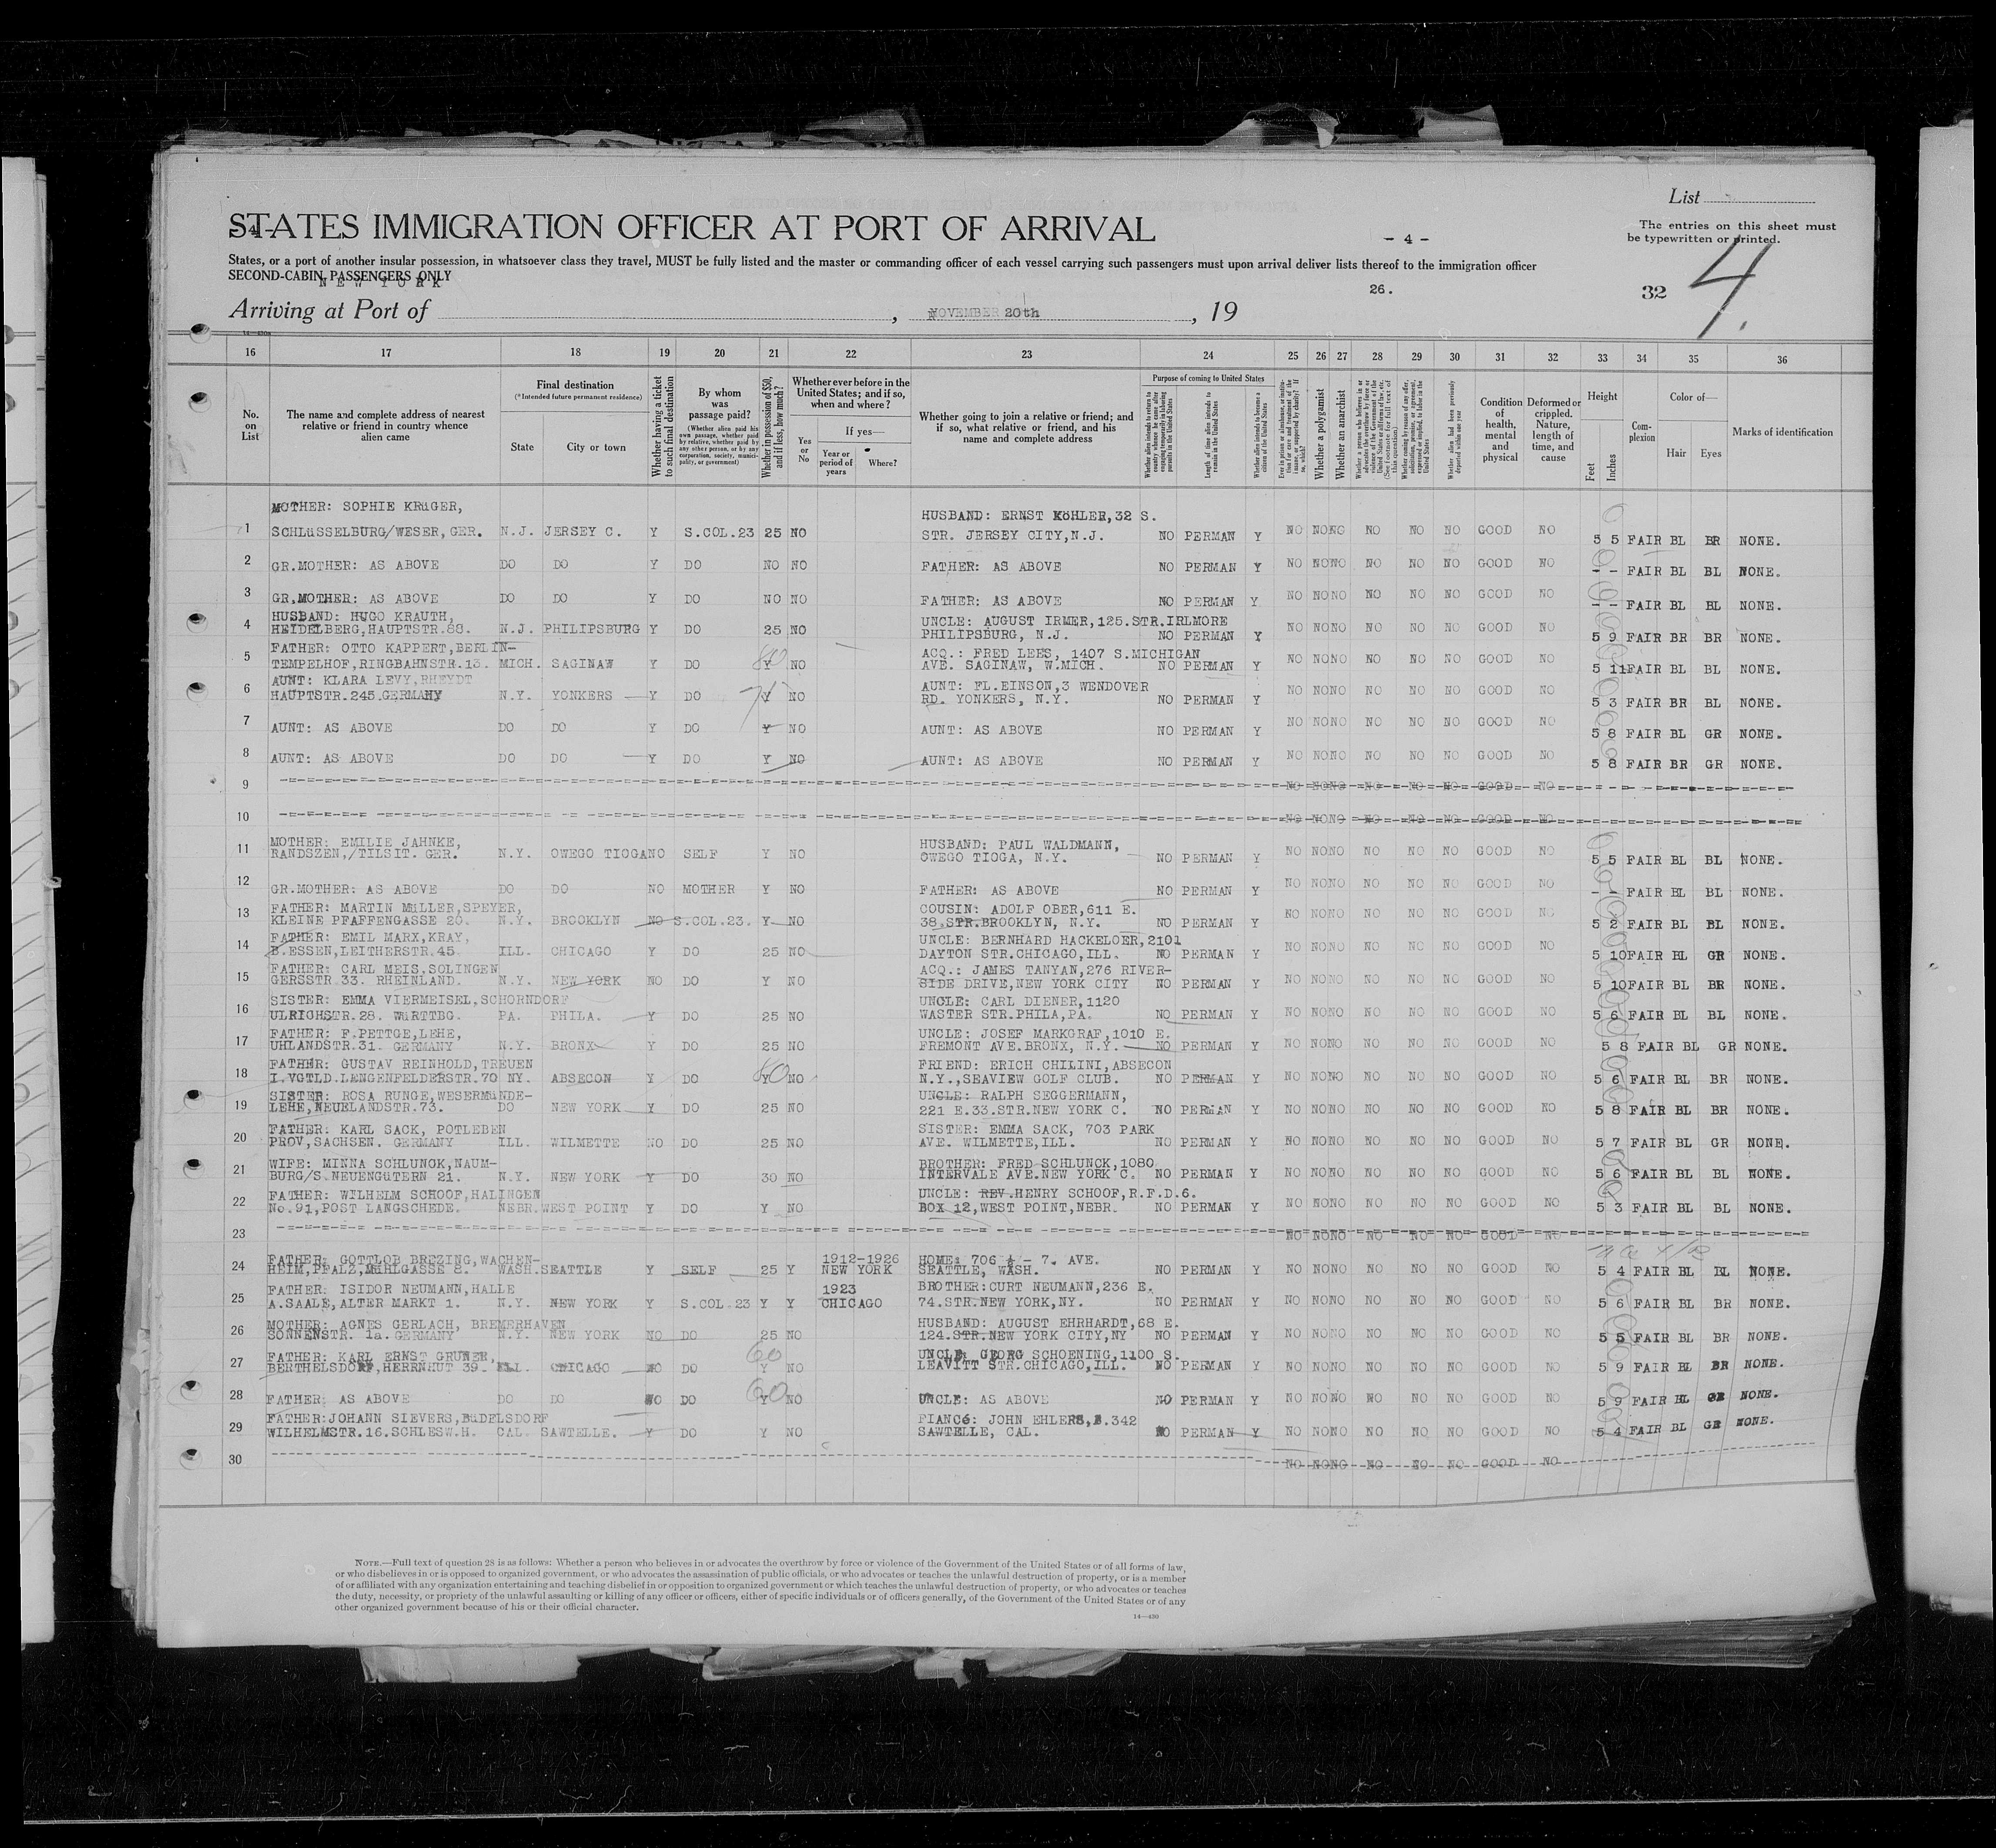 List
STATES IMMIGRATION OFFICER AT PORT OF ARRIVAL
- 4 -
The entries on this sheet must
be typewritten or printed.
States, or a port of another insular possession, in whatsoever class they travel, MUST be fully listed and the master or commanding officer of each vessel carrying such passengers must upon arrival deliver lists thereof to the immigration officer
SECOND-CABIN PASSENGERS ONLY
NEW YORK
26.
32
4.
Arriving at Port of , NOVEMBER 20th , 19
14—430a
16 17 18 19 20 21 22 23 24 25 26 27 28 29 30 31 32 33 34 35 36
No. on List
The name and complete address of nearest relative or friend in country whence alien came
Final destination
(*Intended future permanent residence)
State
City or town
Whether having a ticket to such final destination
By whom was passage paid?
(Whether alien paid his own passage, whether paid by relative, whether paid by any other person, or by any corporation, society, municipality, or government)
Whether in possession of $50, and if less, how much?
Whether ever before in the United States; and if so, when and where?
Yes or No
If yes—
Year or period of years
Where?
Whether going to join a relative or friend; and if so, what relative or friend, and his name and complete address
Purpose of coming to United States
Length of time alien intends to remain in the United States
Whether alien intends to become a citizen of the United States
Whether a polygamist
Whether an anarchist
Condition of health, mental and physical
Deformed or crippled. Nature, length of time, and cause
Height
Feet
Inches
Complexion
Color of—
Hair
Eyes
Marks of identification
MOTHER: SOPHIE KRüGER,
HUSBAND: ERNST KöHLER,32 S.
1 SCHLüSSELBURG/WESER,GER. N.J. JERSEY C. Y S.COL.23 25 NO STR. JERSEY CITY,N.J. NO PERMAN Y NO NO NO NO NO NO GOOD NO 5 5 FAIR BL BR NONE.
2 GR.MOTHER: AS ABOVE DO DO Y DO NO NO FATHER: AS ABOVE NO PERMAN Y NO NO NO NO NO NO GOOD NO - - FAIR BL BL NONE.
3 GR.MOTHER: AS ABOVE DO DO Y DO NO NO FATHER: AS ABOVE NO PERMAN Y NO NO NO NO NO NO GOOD NO - - FAIR BL BL NONE.
HUSBAND: HUGO KRAUTH, UNCLE: AUGUST IRMER,125.STR.IRLMORE
4 HEIDELBERG,HAUPTSTR.88. N.J. PHILIPSBURG Y DO 25 NO PHILIPSBURG, N.J. NO PERMAN Y NO NO NO NO NO NO GOOD NO 5 9 FAIR BR BR NONE.
FATHER: OTTO KAPPERT,BERLIN- ACQ.: FRED LEES, 1407 S.MICHIGAN
5 TEMPELHOF,RINGBAHNSTR.13. MICH. SAGINAW Y DO Y 80 NO AVE. SAGINAW, W.MICH. NO PERMAN Y NO NO NO NO NO NO GOOD NO 5 11 FAIR BL BL NONE.
AUNT: KLARA LEVY,RHEYDT AUNT: FL.EINSON,3 WENDOVER
6 HAUPTSTR.245.GERMANY N.Y. YONKERS Y DO Y NO RD. YONKERS, N.Y. NO PERMAN Y NO NO NO NO NO NO GOOD NO 5 3 FAIR BR BL NONE.
7 AUNT: AS ABOVE DO DO Y DO Y NO AUNT: AS ABOVE NO PERMAN Y NO NO NO NO NO NO GOOD NO 5 8 FAIR BL GR NONE.
8 AUNT: AS ABOVE DO DO Y DO Y NO AUNT: AS ABOVE NO PERMAN Y NO NO NO NO NO NO GOOD NO 5 8 FAIR BR GR NONE.
9 NO NO NO NO NO NO GOOD NO
10 NO NO NO NO NO NO GOOD NO
MOTHER: EMILIE JAHNKE, HUSBAND: PAUL WALDMANN,
11 RANDSZEN,/TILSIT. GER. N.Y. OWEGO TIOGA NO SELF Y NO OWEGO TIOGA, N.Y. NO PERMAN Y NO NO NO NO NO NO GOOD NO 5 5 FAIR BL BL NONE.
12 GR.MOTHER: AS ABOVE DO DO NO MOTHER Y NO FATHER: AS ABOVE NO PERMAN Y NO NO NO NO NO NO GOOD NO - - FAIR BL BL NONE.
FATHER: MARTIN MüLLER,SPEYER, COUSIN: ADOLF OBER,611 E.
13 KLEINE PFAFFENGASSE 20. N.Y. BROOKLYN NO S.COL.23. Y NO 38.STR.BROOKLYN, N.Y. NO PERMAN Y NO NO NO NO NO NO GOOD NO 5 2 FAIR BL BL NONE.
FATHER: EMIL MARX,KRAY, UNCLE: BERNHARD HACKELOER,2101
14 B.ESSEN,LEITHERSTR.45. ILL. CHICAGO Y DO 25 NO DAYTON STR.CHICAGO,ILL. NO PERMAN Y NO NO NO NO NO NO GOOD NO 5 10 FAIR BL GR NONE.
FATHER: CARL MEIS,SOLINGEN ACQ.: JAMES TANYAN,276 RIVER-
15 GERSSTR.33. RHEINLAND. N.Y. NEW YORK NO DO Y NO SIDE DRIVE,NEW YORK CITY NO PERMAN Y NO NO NO NO NO NO GOOD NO 5 10 FAIR BL BR NONE.
SISTER: EMMA VIERMEISEL,SCHORNDORF UNCLE: CARL DIENER,1120
16 ULRICHSTR.28. WüRTTBG. PA. PHILA. Y DO 25 NO WASTER STR.PHILA,PA. NO PERMAN Y NO NO NO NO NO NO GOOD NO 5 6 FAIR BL BL NONE.
FATHER: F.PETTGE,LEHE, UNCLE: JOSEF MARKGRAF,1010 E.
17 UHLANDSTR.31. GERMANY N.Y. BRONX Y DO 25 NO FREMONT AVE.BRONX, N.Y. NO PERMAN Y NO NO NO NO NO NO GOOD NO 5 8 FAIR BL GR NONE.
FATHER: GUSTAV REINHOLD,TREUEN FRIEND: ERICH CHILINI,ABSECON
18 I.VGTLD.LENGENFELDERSTR.70 NY. ABSECON Y DO Y 80 NO N.Y.,SEAVIEW GOLF CLUB. NO PERMAN Y NO NO NO NO NO NO GOOD NO 5 6 FAIR BL BR NONE.
SISTER: ROSA RUNGE,WESERMüNDE- UNCLE: RALPH SEGGERMANN,
19 LEHE,NEUELANDSTR.73. DO NEW YORK Y DO 25 NO 221 E.33.STR.NEW YORK C. NO PERMAN Y NO NO NO NO NO NO GOOD NO 5 8 FAIR BL BR NONE.
FATHER: KARL SACK, POTLEBEN SISTER: EMMA SACK, 703 PARK
20 PROV,SACHSEN. GERMANY ILL. WILMETTE NO DO 25 NO AVE. WILMETTE,ILL. NO PERMAN Y NO NO NO NO NO NO GOOD NO 5 7 FAIR BL GR NONE.
WIFE: MINNA SCHLUNCK,NAUM- BROTHER: FRED SCHLUNCK,1080
21 BURG/S.NEUENGüTERN 21. N.Y. NEW YORK Y DO 30 NO INTERVALE AVE.NEW YORK C. NO PERMAN Y NO NO NO NO NO NO GOOD NO 5 6 FAIR BL BL NONE.
FATHER: WILHELM SCHOOF,HALINGEN UNCLE: REV.HENRY SCHOOF,R.F.D.6.
22 No.91,POST LANGSCHEDE. NEBR. WEST POINT Y DO Y NO BOX 12,WEST POINT,NEBR. NO PERMAN Y NO NO NO NO NO NO GOOD NO 5 3 FAIR BL BL NONE.
23 NO NO NO NO NO NO GOOD NO
FATHER: GOTTLOB BREZING,WACHEN- 1912-1926 HOME: 706 - 7. AVE.
24 HEIM,PFALZ,MüHLGASSE 8. WASH. SEATTLE Y SELF 25 Y NEW YORK SEATTLE, WASH. NO PERMAN Y NO NO NO NO NO NO GOOD NO 5 4 FAIR BL BL NONE.
FATHER: ISIDOR NEUMANN,HALLE 1923 BROTHER:CURT NEUMANN,236 E.
25 A.SAALE,ALTER MARKT 1. N.Y. NEW YORK Y S.COL.23 Y Y CHICAGO 74.STR.NEW YORK,NY. NO PERMAN Y NO NO NO NO NO NO GOOD NO 5 6 FAIR BL BR NONE.
MOTHER: AGNES GERLACH, BREMERHAVEN HUSBAND: AUGUST EHRHARDT,68 E.
26 SONNENSTR. 1a. GERMANY N.Y. NEW YORK NO DO 25 NO 124.STR.NEW YORK CITY,NY NO PERMAN Y NO NO NO NO NO NO GOOD NO 5 5 FAIR BL BR NONE.
FATHER: KARL ERNST GRUNER, 60 UNCLE: GEORG SCHOENING,1100 S.
27 BERTHELSDORF,HERRNHUT 39. ILL. CHICAGO NO DO Y NO LEAVITT STR.CHICAGO,ILL. NO PERMAN Y NO NO NO NO NO NO GOOD NO 5 9 FAIR BL BR NONE.
28 FATHER: AS ABOVE DO DO NO DO Y 60 NO UNCLE: AS ABOVE NO PERMAN Y NO NO NO NO NO NO GOOD NO 5 9 FAIR BL GR NONE.
FATHER:JOHANN SIEVERS,BüDELSDORF FIANCé: JOHN EHLERS,B.342
29 WILHELMSTR.16.SCHLESW.H. CAL. SAWTELLE. Y DO Y NO SAWTELLE, CAL. NO PERMAN Y NO NO NO NO NO NO GOOD NO 5 4 FAIR BL GR NONE.
30 NO NO NO NO NO NO GOOD NO
NOTE.—Full text of question 28 is as follows: Whether a person who believes in or advocates the overthrow by force or violence of the Government of the United States or of all forms of law,
or who disbelieves in or is opposed to organized government, or who advocates the assassination of public officials, or who advocates or teaches the unlawful destruction of property, or is a member
of or affiliated with any organization entertaining and teaching disbelief in or opposition to organized government or which teaches the unlawful destruction of property, or who advocates or teaches
the duty, necessity, or propriety of the unlawful assaulting or killing of any officer or officers, either of specific individuals or of officers generally, of the Government of the United States or of any
other organized government because of his or their official character.
14—430